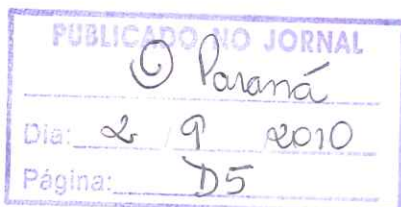 PUBLICADO NO JORNAL
O Paraná
Dia: 2 / 9 / 2010
Página: D5